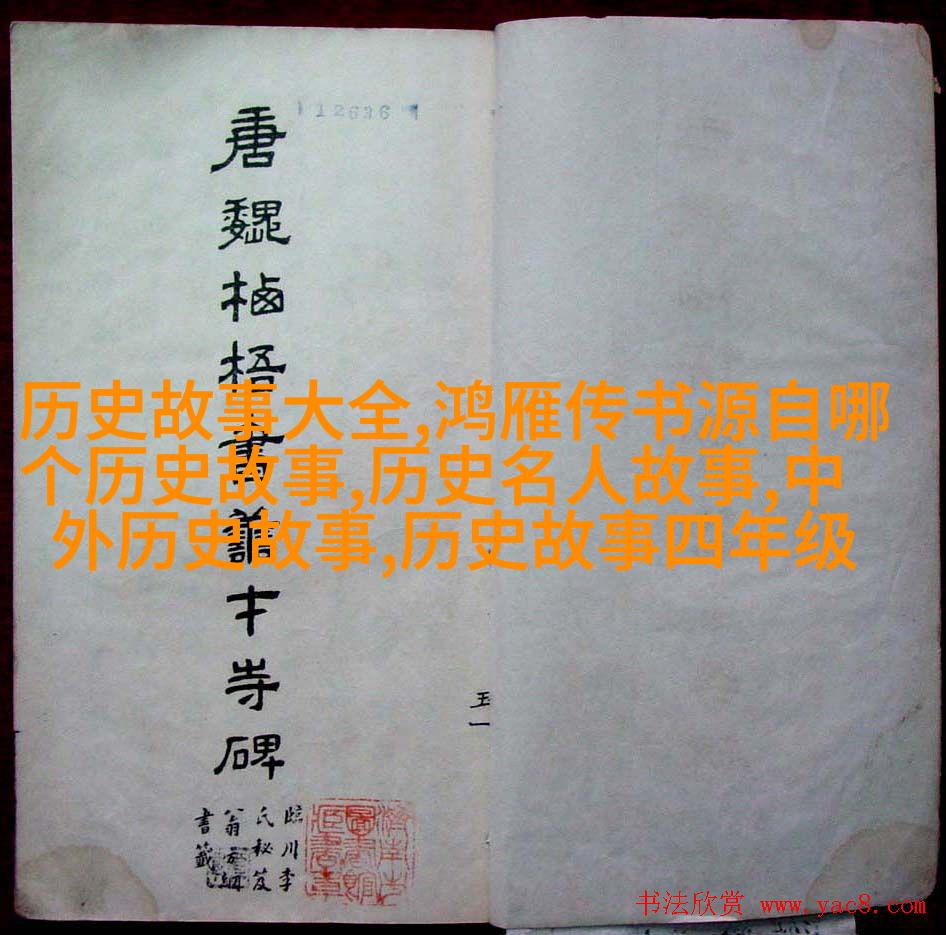 12636
唐魏栖梧書善才寺碑
历史故事大全,鸿雁传书源自哪
个历史故事,历史名人故事,中
外历史故事,历史故事四年级
臨川李
氏秘笈
翁方綱
書籤
书法欣赏 www.yac8.com